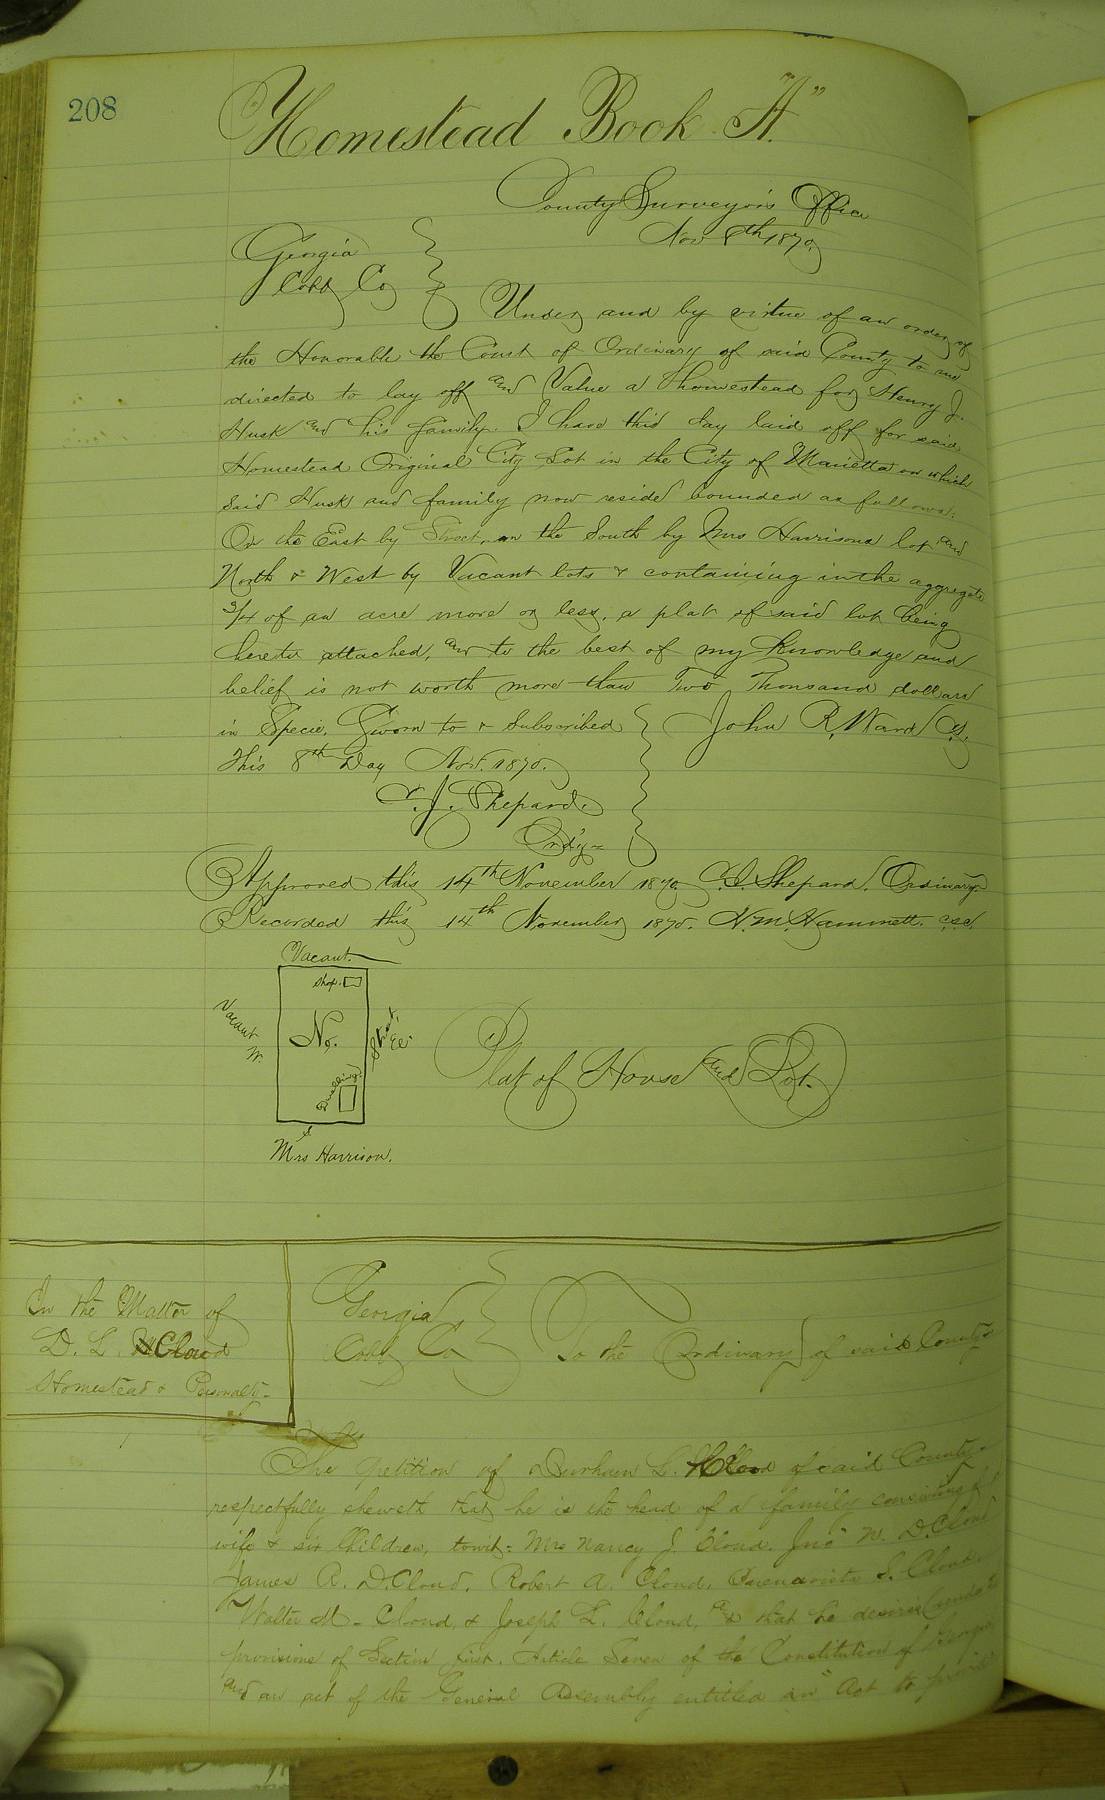 208
Homestead Book "A"
County Surveyor's Office
Nov 8th 1870.
Georgia
Cobb Co
Under and by virtue of an order of
the Honorable the Court of Ordinary of said County to me
directed to lay off and Value a Homestead for Henry J.
Husk and his family. I have this day laid off for said
Homestead Original City Lot in the City of Marietta on which
Said Husk and family now reside bounded as follows.
On the East by Street, on the South by Mrs Harrisons lot and
North & West by Vacant lots & containing in the aggregate
3/4 of an acre more or less, a plat of said lot being
hereto attached, and to the best of my Knowledge and
belief is not worth more than Two Thousand dollars
in Specie. Sworn to & Subscribed
John R. Ward C.S.
This 8th Day Nov. 1870.
C. J. Shepard.
Ord'y
Approved this 14th November 1870. C. J. Shepard. Ordinary
Recorded this 14th November 1870. N. M. Hammett. csc
Vacant.
Shop.
Vacant W.
No.
Street, E.
Dwelling
Mrs Harrison.
Plat of House and Lot.
In the Matter of
D. L. Cloud
Homestead & Personalty
Georgia
Cobb Co
To the Ordinary of said County
The petition of L. Cloud of said County
respectfully sheweth that he is the head of a family consisting of
wife & six Children, towit: Mrs Nancy J. Cloud. Jno W. D. Cloud
James R. D. Cloud. Robert A. Cloud. S. Cloud.
Walter M. Cloud & Joseph L. Cloud, & that he desires under the
provisions of Section first. Article Seven of the Constitution of Georgia
and an act of the General Assembly entitled an "Act to provide